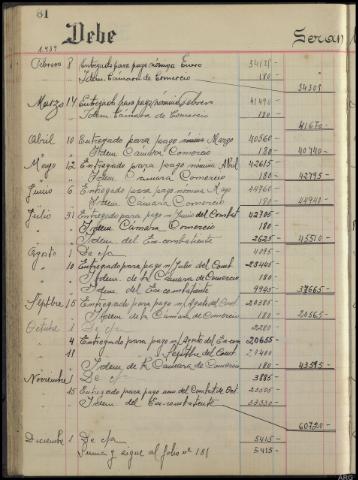 81
Debe
Seran
1.939
Febrero 8 Entregado para pago nómina Enero 34125-
" Idem Cámara de Comercio 180- 34305
Marzo 14 Entregado para pago nómina Febrero 41490-
" Idem Cámara de Comercio 180- 41670-
Abril 10 Entregado para pago nómina Marzo 40560-
" Idem Cámara Comercio 180- 40740-
Mayo 12 Entregado para pago nómina Abril 42615-
" Idem Cámara Comercio 180- 42795-
Junio 6 Entregado para pago nómina Mayo 44760-
" Idem Cámara Comercio 180- 44940-
Julio 31 Entregado para pago n/ Junio del Combat 42705-
" Idem Cámara Comercio 180-
" Idem del Ex-combatiente 2625- 45510-
Agosto 1 De c/a 4095-
" 10 Entregado para pago n/ Julio del Comb.
" Idem de la Cámara de Comercio 180-
" Idem del Ex combatiente 9945- 37665-
Sepbre 15 Entregado para pago n/ Agosto del Comb. 20385-
" Idem de la Cámara de Comercio 180- 20565-
Octubre 1 De c/a 2280-
" 4 Entregado para pago n/ Agosto del Ex-com 20655-
" 11 " Sepbre del Comt.
" Idem de la Cámara de Comercio 180- 43595-
Noviembre 1 De c/a 3885-
" 15 Entregado para pago nom. del Combat. de Oct.
" Idem del Ex-combatiente 60720-
Diciembre 1 De c/a 5415-
Suma y sigue al folio nº 151 5415-
ARG